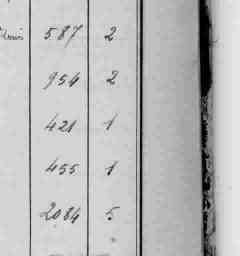 587 2
954 2
421 1
455 1
2084 5